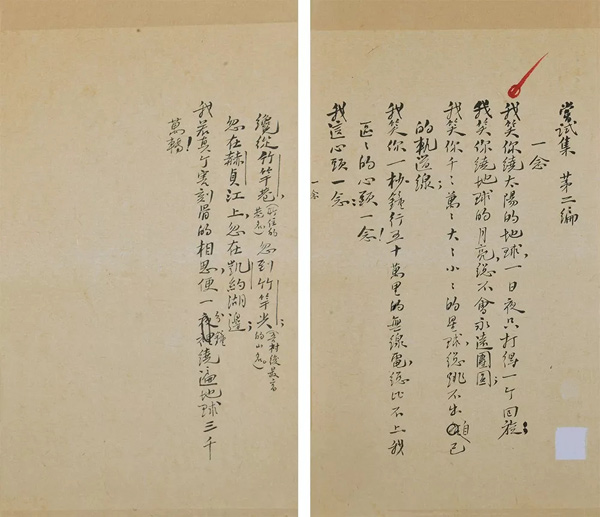 嘗試集 第二編
一念
我笑你繞太陽的地球,一日夜只打得一个回旋;
我笑你繞地球的月亮,總不會永遠團圓;
我笑你千〻萬〻大〻小〻的星球,總跳不出自己
的軌道線;
我笑你一秒鐘行五十萬里的無線電,總比不上我
區〻的心頭一念!
我這心頭一念:
一念
纔從竹竿巷(所住的巷名),忽到竹竿尖(吾村後最高的山名);
忽在赫貞江上,忽在凱約湖邊;
我若真个害刻骨的相思,便一分鐘繞遍地球三千
萬轉!